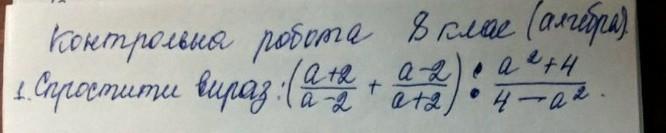 Контрольна робота 8 клас (алгебра)
1. Спростити вираз: ((a+2)/(a-2) + (a-2)/(a+2)) : (a²+4)/(4-a²).